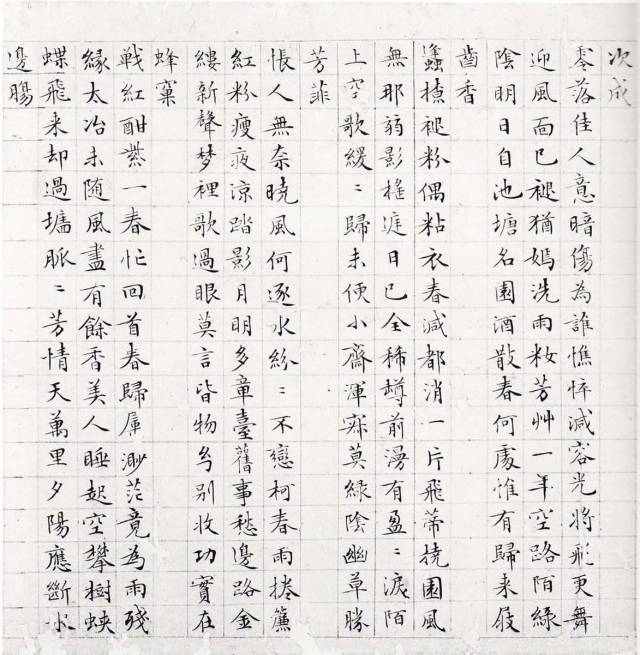 次成
零落佳人意暗傷為誰憔悴減容光將飛更舞
迎風面已褪猶嫣洗雨妝芳艸一年空路陌綠
陰明日自池塘名園酒散春何處惟有歸来屐
齒香
蠭撩褪粉偶粘衣春減都消一片飛蒂撓園風
無那弱影搖庭日已全稀樽前漫有盈〻淚陌
上空歌緩〻歸未便小齋渾寂莫綠陰幽草勝
芳菲
悵人無奈曉風何逐水紛〻不戀柯春雨捲簾
紅粉瘦夜涼踏影月明多章臺舊事愁邊路金
縷新聲梦裡歌過眼莫言皆物幻別收功實在
蜂窠
戰紅酣紫一春忙回首春歸屬渺茫竟為雨殘
緣太冶未随風盡有餘香美人睡起空攀樹蛺
蝶飛来却過墻脈〻芳情天萬里夕陽應斷水
邊腸